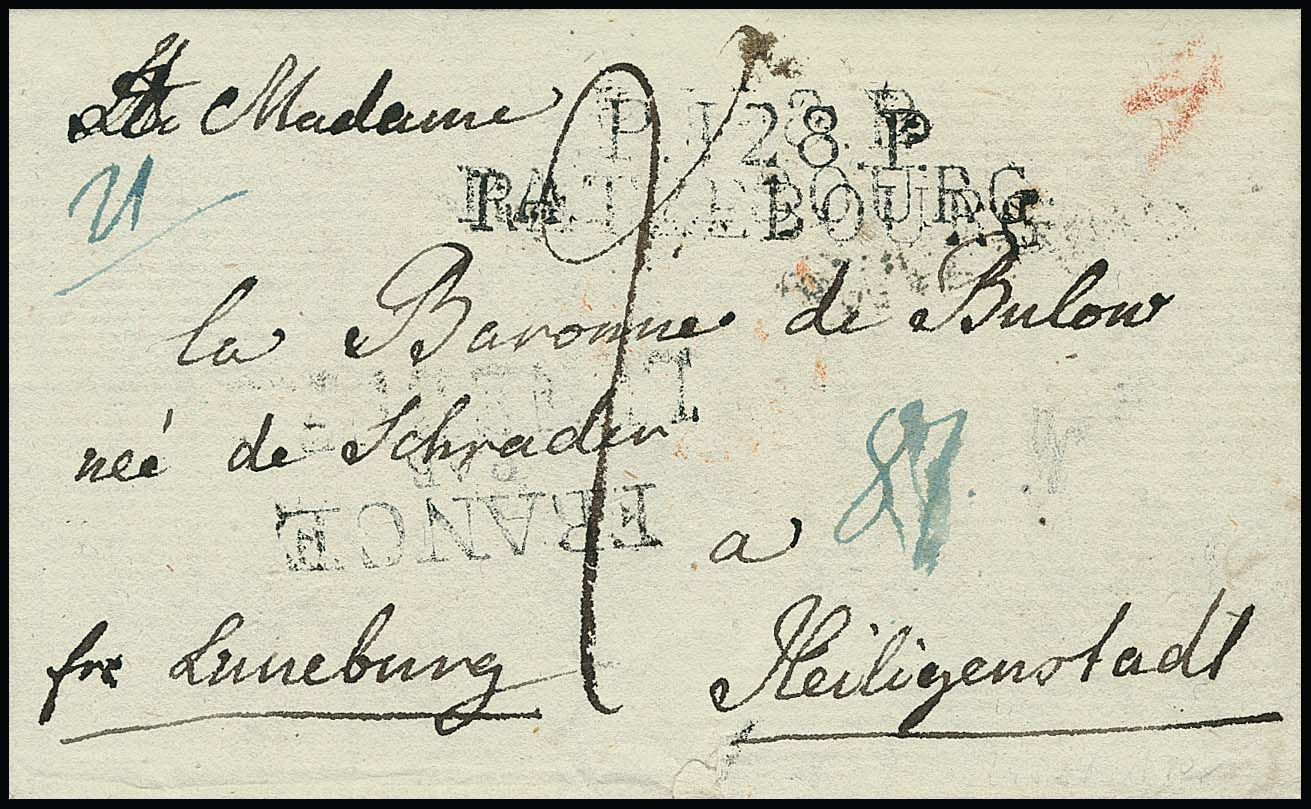 A Madame
P.128.P
RATZEBOURG
la Baronne de Bulow
née de Schrader
FRANCE
PAR
a
87
frx Luneburg
Heiligenstadt